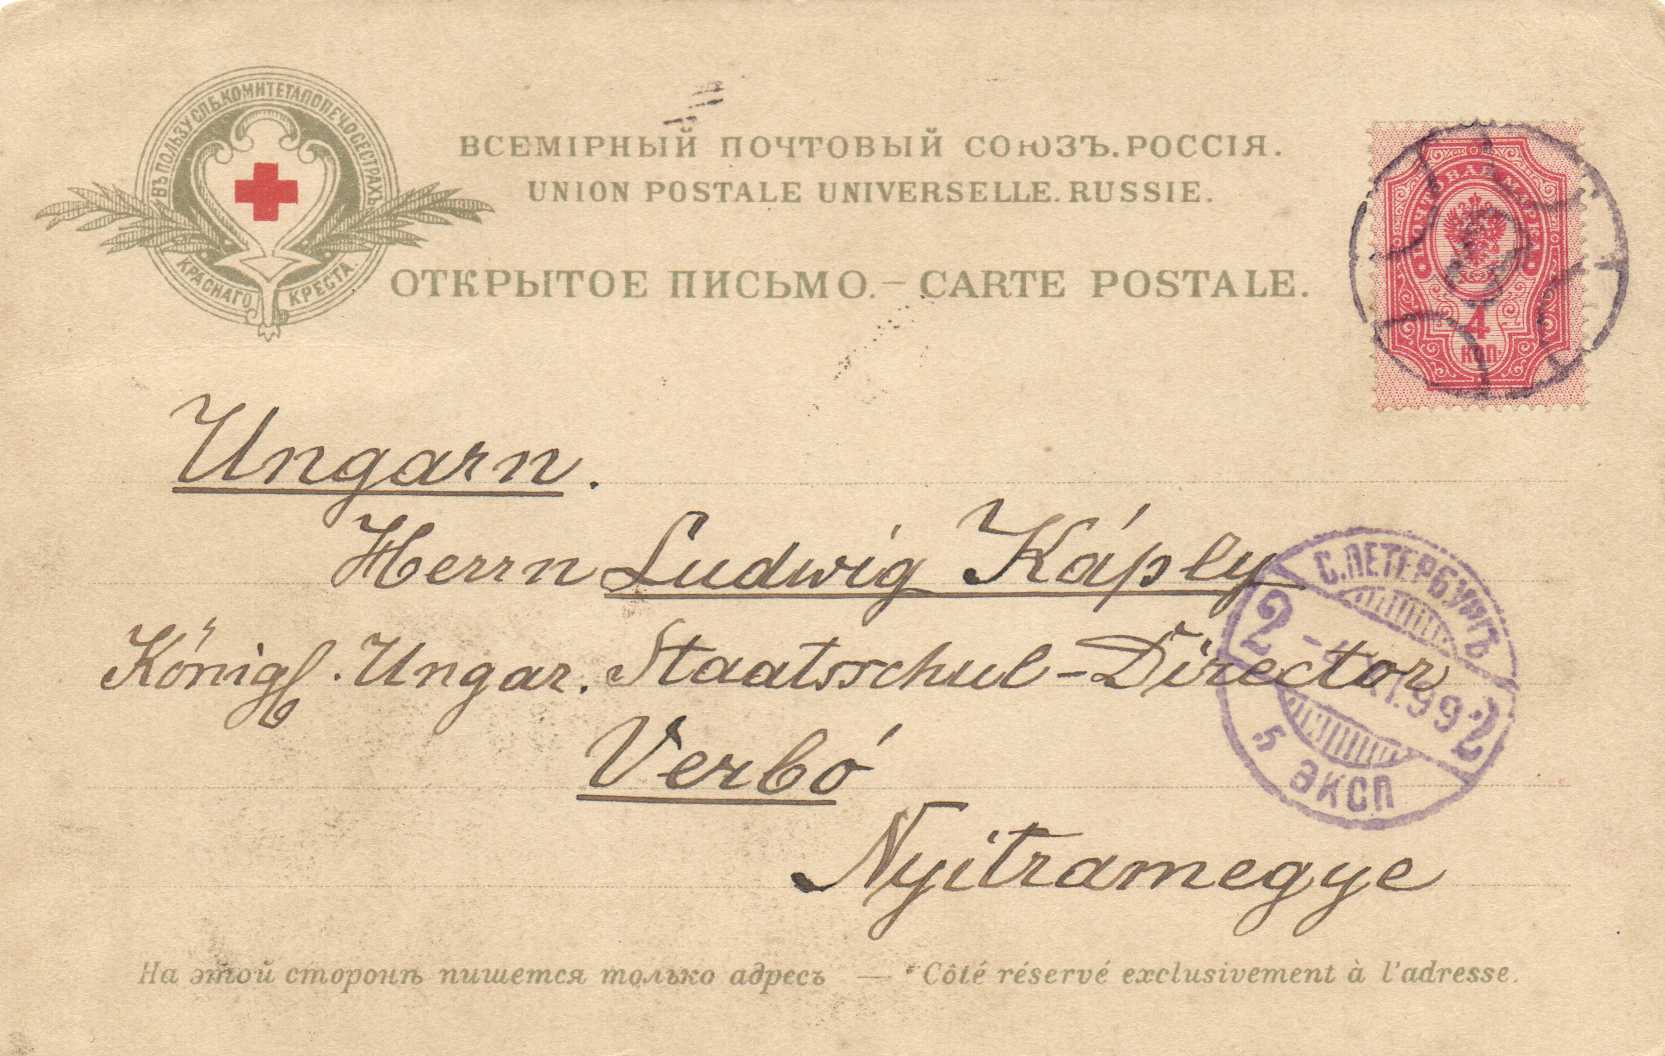 ВЪ ПОЛЬЗУ СПБ. КОМИТЕТА ПОПЕЧ. О СЕСТРАХЪ
КРАСНАГО КРЕСТА.
ВСЕМІРНЫЙ ПОЧТОВЫЙ СОЮЗЪ. РОССІЯ.
UNION POSTALE UNIVERSELLE. RUSSIE.
ОТКРЫТОЕ ПИСЬМО. — CARTE POSTALE.
ПОЧТОВАЯ МАРКА
4
КОП.
Ungarn.
Herrn Ludwig Káply
Königl. Ungar. Staatsschul-Director
Verbó
Nyitramegye
С.ПЕТЕРБУРГЪ
2 XI.99 2
5 ЭКСП
На этой сторонѣ пишется только адресъ — Côté réservé exclusivement à l'adresse.